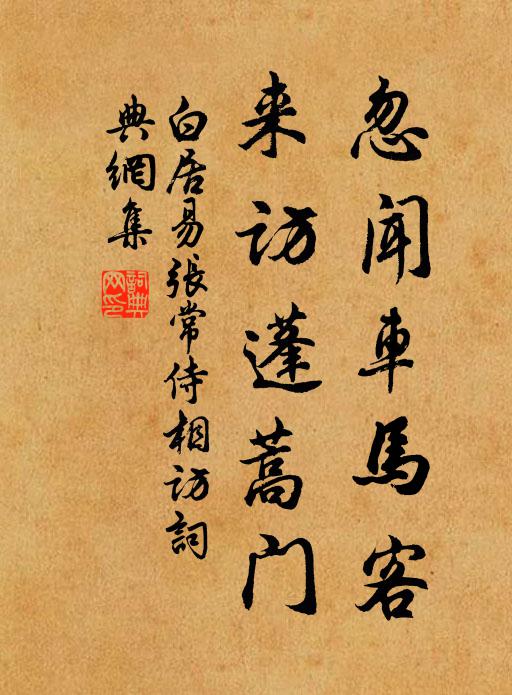 忽闻車馬客
来访蓬蒿门
白居易張常侍相访詞
典網集
詞典网印